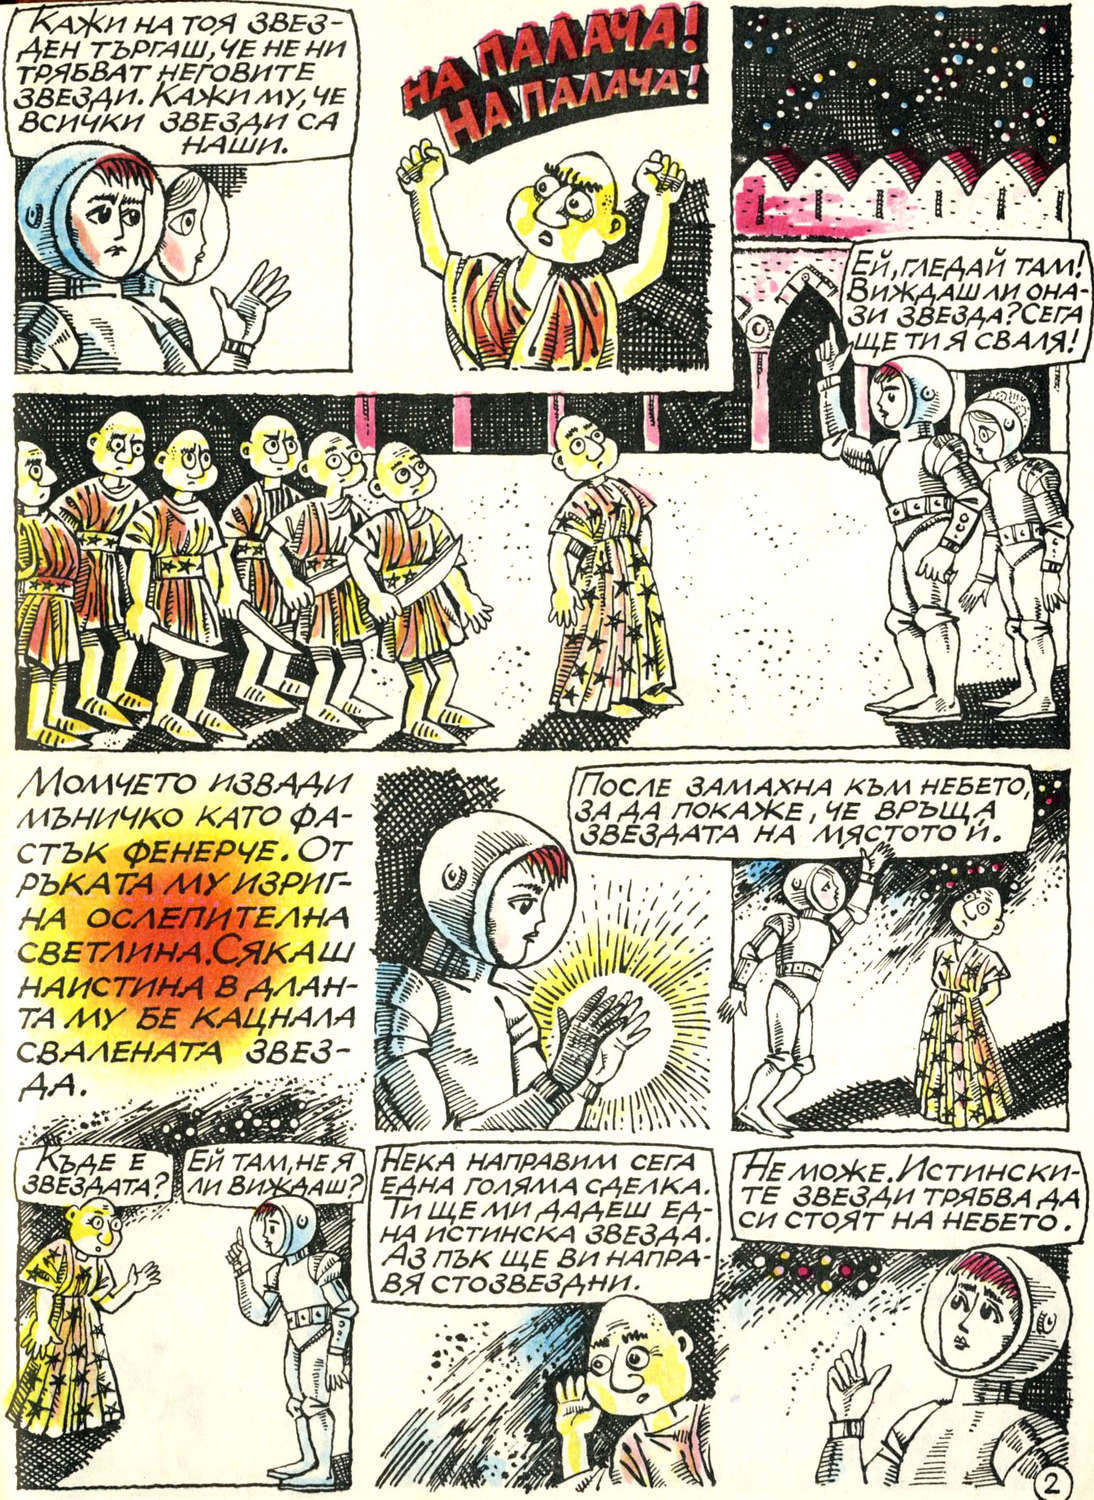 КАЖИ НА ТОЯ ЗВЕЗ-
ДЕН ТЪРГАШ, ЧЕ НЕ НИ
ТРЯБВАТ НЕГОВИТЕ
ЗВЕЗДИ. КАЖИ МУ, ЧЕ
ВСИЧКИ ЗВЕЗДИ СА
НАШИ.
НА ПАЛАЧА!
НА ПАЛАЧА!
ЕЙ, ГЛЕДАЙ ТАМ!
ВИЖДАШ ЛИ ОНА-
ЗИ ЗВЕЗДА? СЕГА
ЩЕ ТИ Я СВАЛЯ!
МОМЧЕТО ИЗВАДИ
МЪНИЧКО КАТО ФА-
СТЪК ФЕНЕРЧЕ. ОТ
РЪКАТА МУ ИЗРИГ-
НА ОСЛЕПИТЕЛНА
СВЕТЛИНА. СЯКАШ
НАИСТИНА В ДЛАН-
ТА МУ БЕ КАЦНАЛА
СВАЛЕНАТА ЗВЕЗ-
ДА.
ПОСЛЕ ЗАМАХНА КЪМ НЕБЕТО,
ЗА ДА ПОКАЖЕ, ЧЕ ВРЪЩА
ЗВЕЗДАТА НА МЯСТОТО Й.
КЪДЕ Е
ЗВЕЗДАТА?
ЕЙ ТАМ, НЕ Я
ЛИ ВИЖДАШ?
НЕКА НАПРАВИМ СЕГА
ЕДНА ГОЛЯМА СДЕЛКА.
ТИ ЩЕ МИ ДАДЕШ ЕД-
НА ИСТИНСКА ЗВЕЗДА.
АЗ ПЪК ЩЕ ВИ НАПРА-
ВЯ СТОЗВЕЗДНИ.
НЕ МОЖЕ. ИСТИНСКИ-
ТЕ ЗВЕЗДИ ТРЯБВА ДА
СИ СТОЯТ НА НЕБЕТО.
2